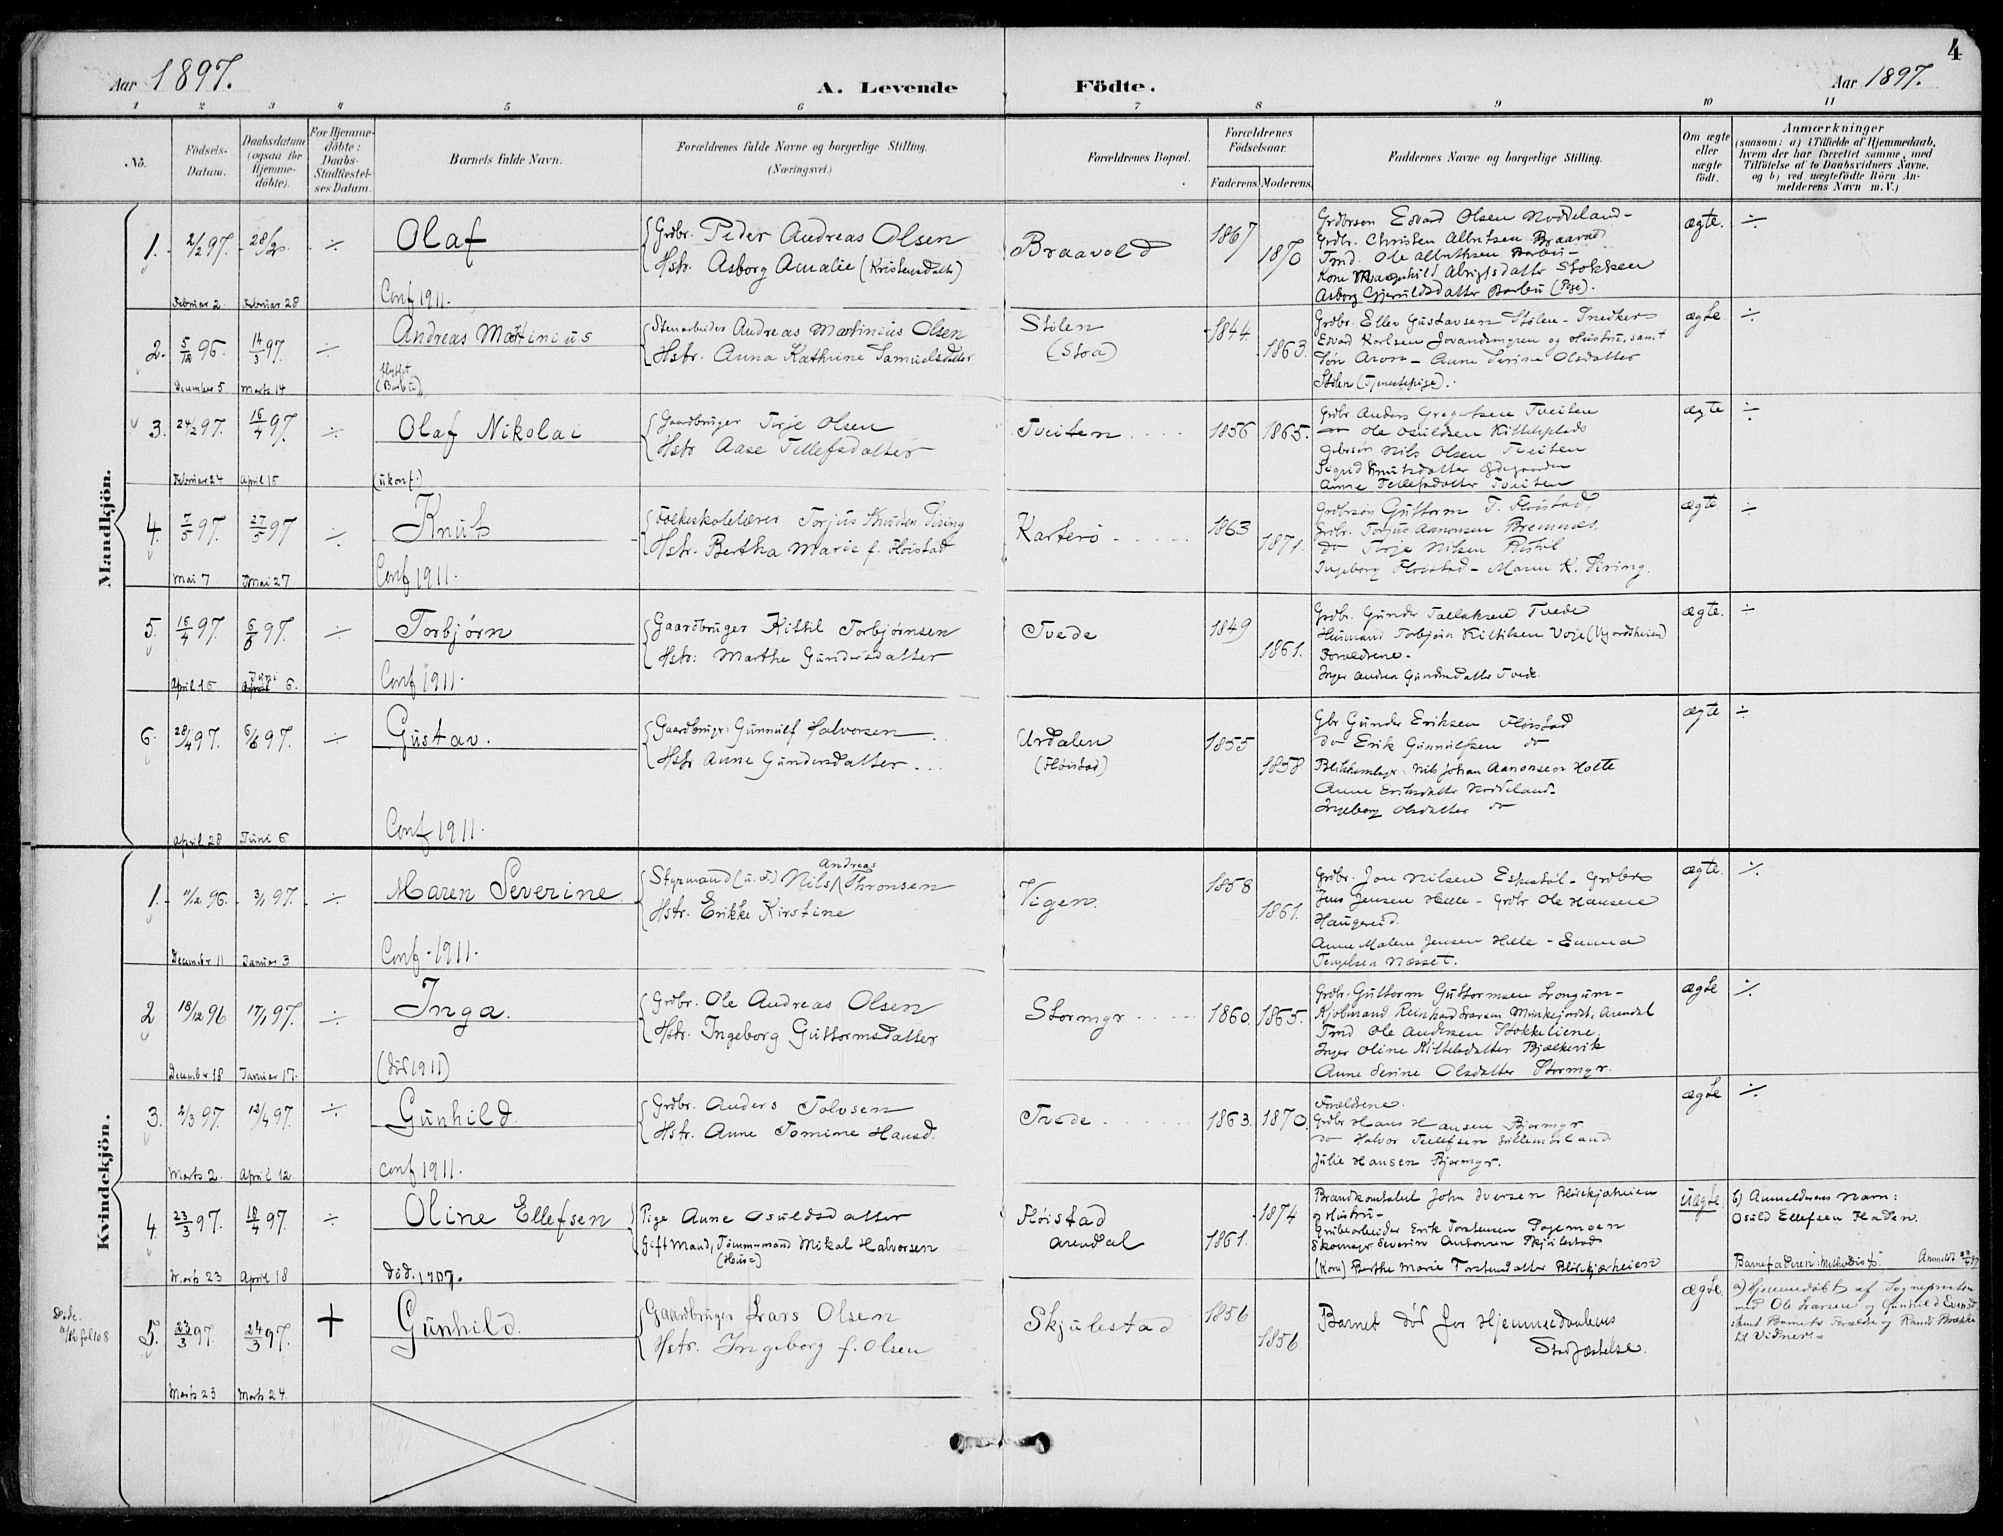 4
Aar 1897.
A. Levende Födte.
Aar 1897.
1 2 3 4 5 6 7 8 9 10 11
No.
Födsels-Datum.
Daabsdatum (ogsaa for Hjemme-döbte).
For Hjemme-döbte: Daabs-Stadfæstel-ses Datum.
Barnets fulde Navn.
Forældrenes fulde Navne og borgerlige Stilling.
(Næringsvei.)
Forældrenes Bopæl.
Forældrenes Födselsaar.
Faderens. Moderens.
Faddernes Navne og borgerlige Stilling.
Om ægte eller uægte födt.
Anmærkninger
(saasom: a) i Tilfælde af Hjemmedaab,
hvem der har forrettet samme, med
Tilföielse af to Daabsvidners Navne.
og b) ved uægtefödte Börn An-
melderens Navn m. V.)
Mandkjön.
1. 2/2 97. 28/2 ÷ Olaf
Grdbr. Peder Andreas Olsen
Hstr. Asborg Amalie (Kristensdatte)
Braavold 1867 1870
Grdbrsøn Edvard Olsen Noddeland -
Grdbr. Christen Albretsen Braavold
Tmd. Ole Albrethsen Barbu -
Kone Magnhild Stokken
Asborg Gjeruldsdatter Barbu (Pige).
ægte. ÷
Februar 2. Februar 28 Conf 1911.
2. 5/12 96. 14/3 97. ÷ Andreas Martinius
Stenarbeider Andreas Martinius Olsen
Hstr. Anna Kathrine Samuelsdatter
Stølen
(Stoa)
1844 1863.
Grdbr. Ellev Gustavsen Stølen - Snedker
Edvard Karlsen Jovandsmyren og Hustru, samt
Søn Aron - Anne Serine Olsdatter
Stølen (Tjenestepige).
ægte ÷
flyttet
(Barbu)
December 5 Marts 14
3. 24/2 97. 16/4 97. ÷ Olaf Nikolai
Gaardbruger Terje Olsen
Hstr Aase Tellefsdatter
Tveiten 1856 1865.
Grdbr Anders Gregertsen Tveiten
Ole Osuldsen Kittelsplads
Nils Olsen Tveiten
Sigrid Knutsdatter Ødegaarden
Anne Tellefsdatter Tveiten
ægte ÷
Februar 24 April 15 (ukonf.)
4. 7/5 97. 27/5 97 ÷ Knut
Folkeskolelærer Torjus Knudsen Sising
Hstr. Bertha Marie f. Fløistad
Karterø 1863 1871.
Grdbrsøn Guttorm T. Fløistad,
Grdbr. Torjus Aanonsen Bremnæs,
do Terje Nilsen
Ingeborg Fløistad - Maren K. Sising.
ægte ÷
Mai 7 Mai 27 Conf 1911.
5. 15/4 97 6/6 97. ÷ Torbjørn
Gaardbruger Kittil Torbjørnsen
Hstr: Marthe Gundersdatter
Tvede 1849 1861.
Grdbr. Gunder Tallaksen Tvede
Husmand Torbjørn Kittilsen Voje
Forældrene -
Inger Andrea Gundersdatter Tvede.
ægte. ÷
April 15 Juni 6. Conf 1911.
6. 28/4 97. 6/6 97. ÷ Gustav.
Gaardbruger Gunnulf Halvorsen
Hstr Anne Gundersdatter
Urdalen
(Fløistad)
1855 1858
Gbr Gunder Eriksen Fløistad
do Erik Gunnulfsen do
Nils Johan Aanonsen Holte
Anne Eriksdatter Noddeland.
Ingeborg Olsdatter do
ægte ÷
April 28 Juni 6 Conf 1911.
Kvindekjön.
1. 11/12 96. 3/1 97. ÷ Maren Severine
Styrmand (u. F.) Nils Andreas Thronsen
Hstr. Erikke Kirstine
Vigen 1858 1861.
Grdbr. Jon Nilsen Eskestøl - Grdbr
Jens Jensen Helle - Grdbr Ole Hansen
Haugereid.
Anne Malene Jensen Helle - Emma
Tengelsen Næsset.
ægte. ÷
December 11 Januar 3 Conf - 1911.
2 18/12 96 17/1 97. ÷ Inga.
Grdbr. Ole Andreas Olsen
Hstr. Ingeborg Guttormsdatter
Stormyr 1860 1865.
Grdbr. Guttorm Guttormsen Longum -
Kjøbmand Reinhard Larsen Munkejordet, Arendal
Tmd Ole Andersen Stokkeliene,
Inger Oline Kittelsdatter Bjelkevik
Anne Serine Olsdatter Stormyr.
ægte ÷
December 18 Januar 17. (død 1911)
3. 2/3 97. 12/4 97. ÷ Gunhild.
Grdbr. Anders Tolvsen
Hstr. Anne Tomine Hansd.
Tvede 1863. 1870.
Forældrene.
Grdbr Hans Hansen Bjormyr
do Halvor Tellefsen
Julie Hansen Bjormyr.
ægte ÷
Marts 2. April 12 conf 1911.
4. 23/3 97. 18/4 97. ÷ Oline Ellefsen
Pige Anne Osuldsdatter
Gift Mand, Tømmermand Mikal Halvorsen
(Huse)
Fløistad
Arendal
1861. 1874
Brandkonstabel John Iversen Blødekjærheien
og Hustru -
Grubearbeider Erik Torstensen
Skomager Severin Antonsen Skjulestad
(Kone) Berthe Marie Torstensdatter Blødekjærheien
uægte. b) Anmelderens Navn:
Osuld Ellefsen Haden.
Barnefaderen: Methodist. Anmeldt 23/4 97
Marts 23 April 18 død. 1907.
Døde. fol 108
5. 23/3 97. 24/3 97. + Gunhild.
Gaardbruger Lars Olsen
Hstr. Ingeborg f. Olsen
Skjulestad 1856 1856.
Barnet død før Hjemmedaabens
Stadfæstelse.
ægte. a) Hjemmedøbt af Sognepresten
med Ole Larsen og Gunhild Evensd.
samt Barnets Forældre og Randi Brække
til Vidner -
Marts 23 Marts 24.